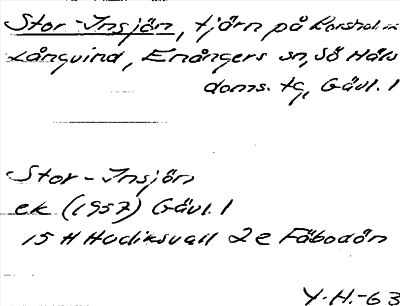 Stor-Insjön, tjärn på Korsholm
Långvind, Enångers sn, Sö Häls
doms. tg, Gävl. l
Stor-Insjön
ek (1957) Gävl. l
15 H Hudiksvall 2 e Fäbodön
Y.H.-63